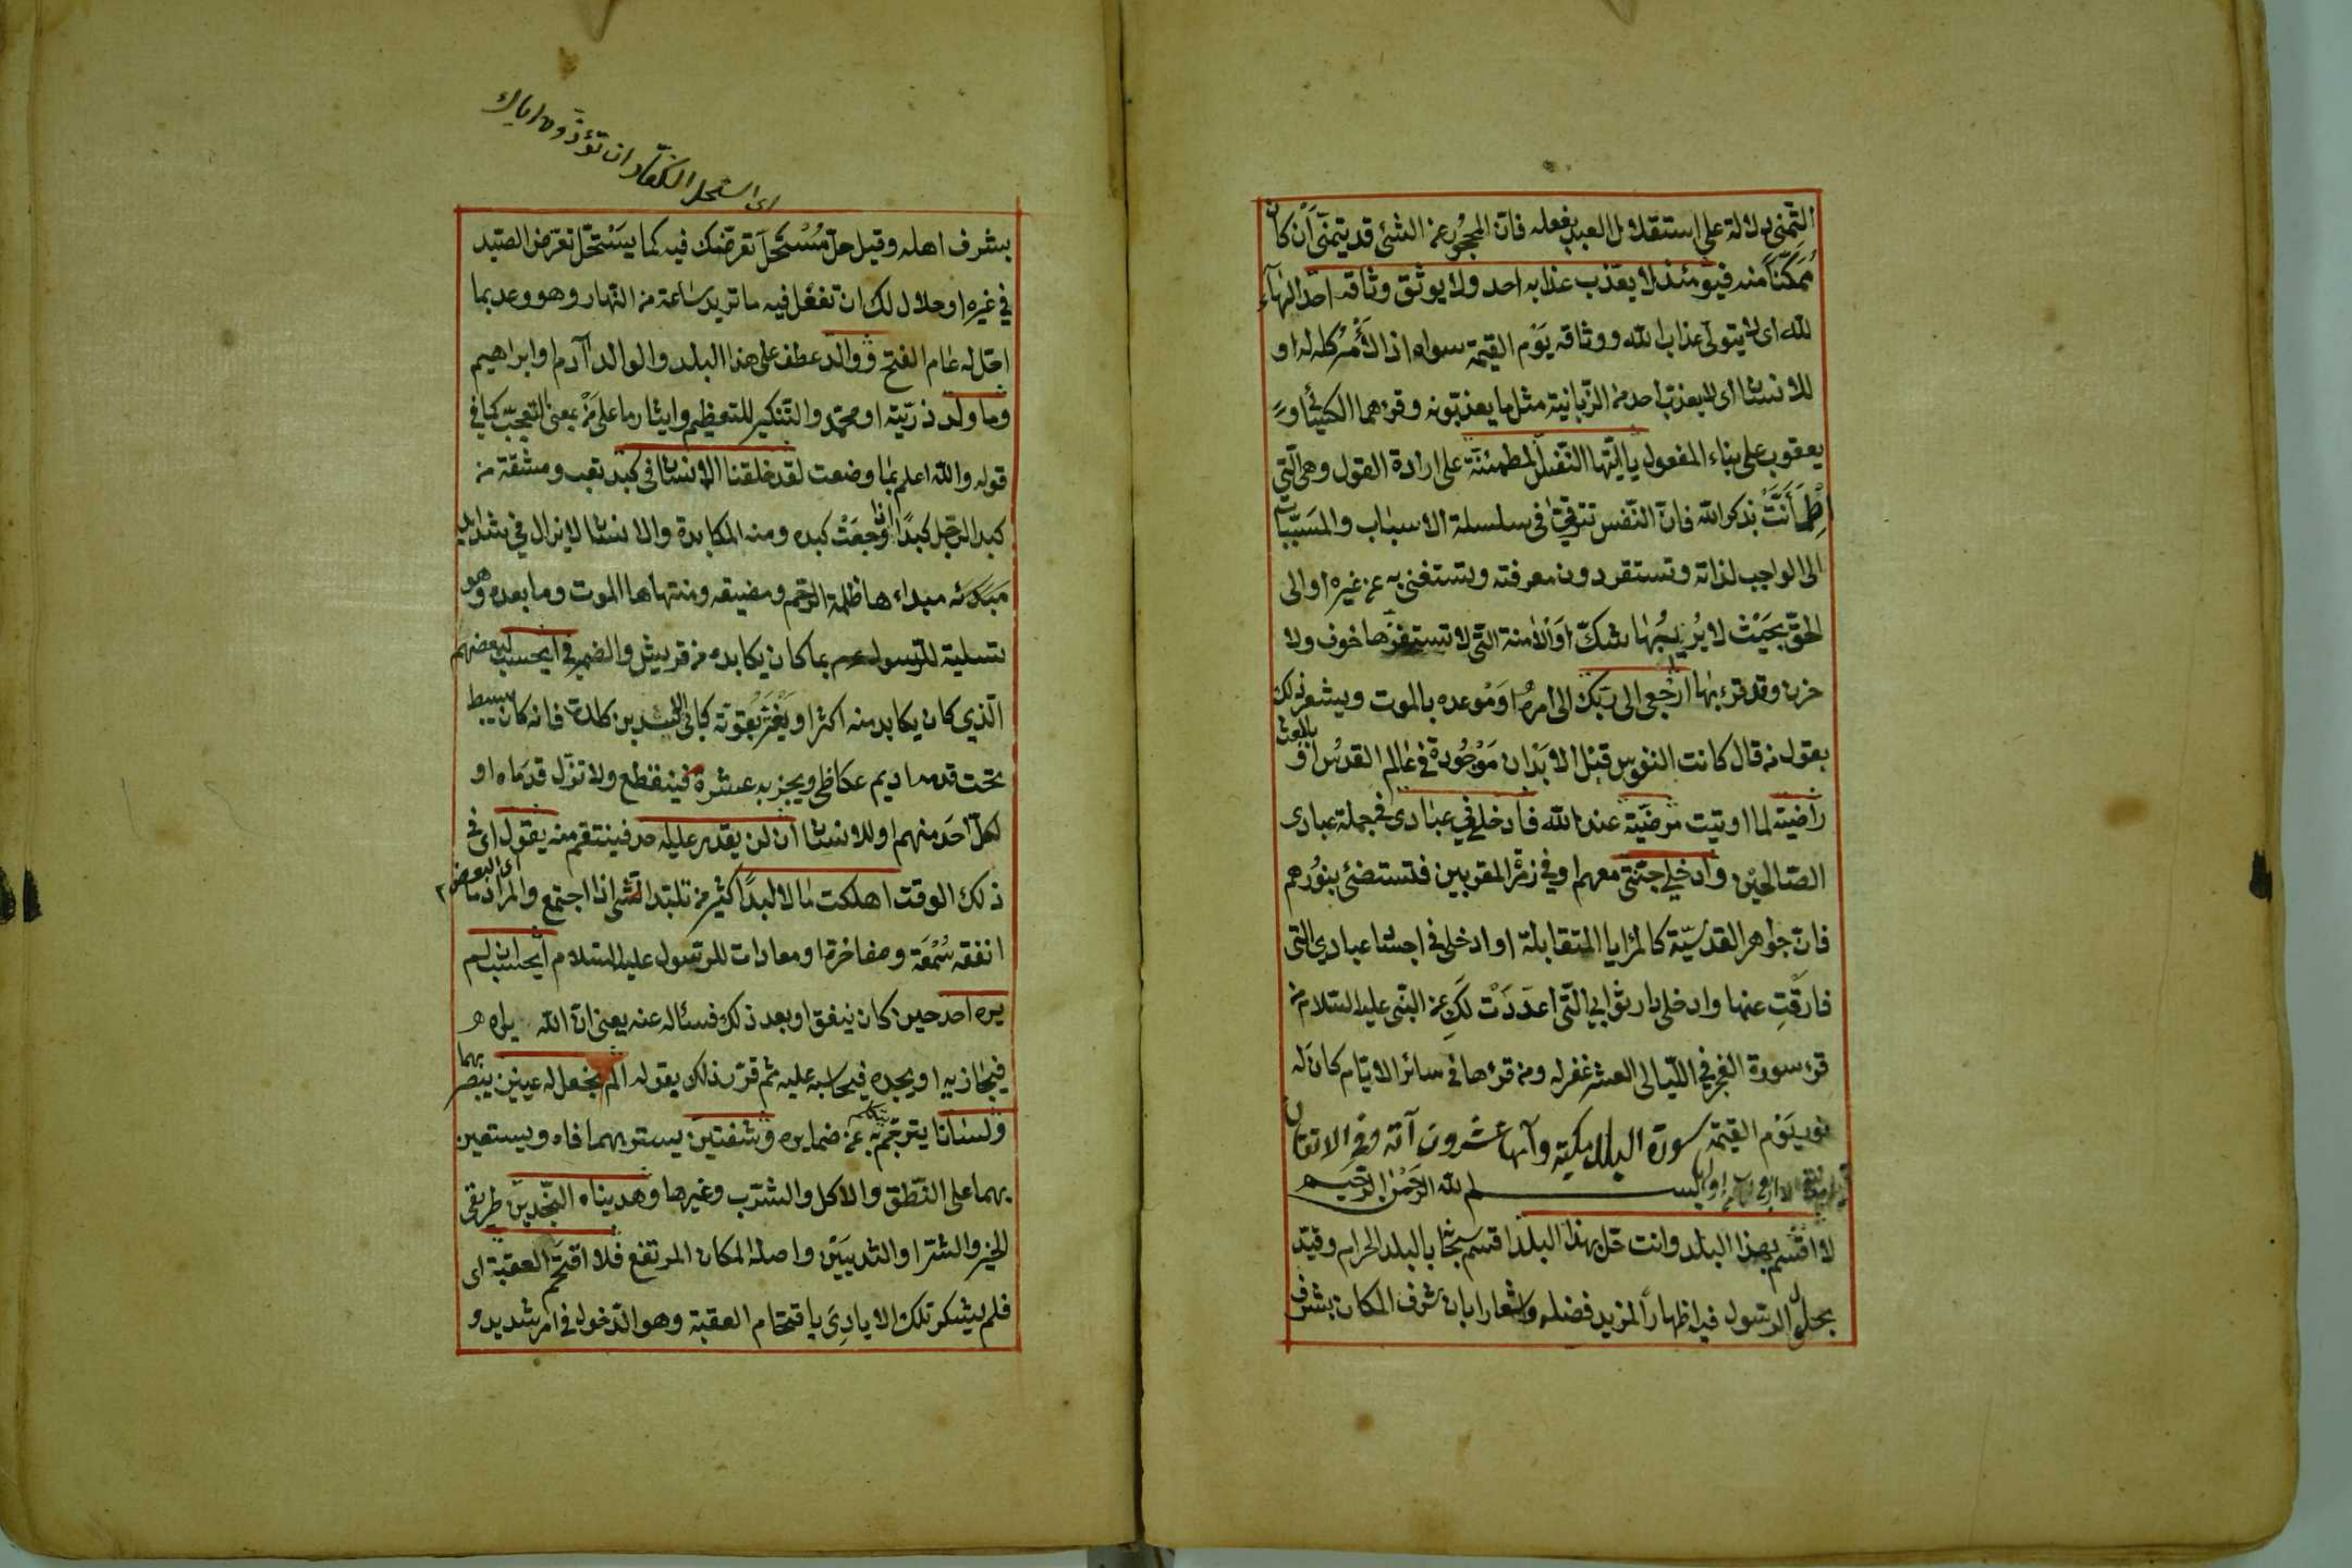 التمنى دلالة على استقلال العبد بفعله فان المحجور عن الشئ قد يتمنى ان كان
ممكنا منه فيومئذ لا يعذب عذابه احد ولا يوثق وثاقه احد الهاء
لله اى لا يتولى عذاب الله ووثاقه يوم القيمة سواه اذ الامر كله له او
للانسان اى لا يعذب احد من الزبانية مثل ما يعذبونه وقرءهما الكسائى و
يعقوب على بناء المفعول يا ايتها النفس المطمئنة على ارادة القول وهى التى
اطمأنت بذكر الله فان النفس تترقى فى سلسلة الاسباب والمسببات
الى الواجب لذاته وتستقر دون معرفته وتستغنى به عن غيره او الى
الحق بحيث لا يريبها شك او الامنة التى لا تستفزها خوف ولا
حزن وقد قرء بها ارجعى الى ربك الى امره او موعده بالموت ويشعر ذلك
بقول من قال كانت النفوس قبل الابدان موجودة فى عالم القدس او
بالبعث
راضية لما اوتيت مرضية عند الله فادخلى فى عبادى فى جملة عبادى
الصالحين وادخلى جنتى معهم او فى زمرة المقربين فتستضئ بنورهم
فان جواهر القدسية كالمرايا المتقابلة او ادخلى فى اجساد عبادى التى
فارقت عنها وادخلى دار ثوابى التى اعددت لك عن النبى عليه السلام من
قرء سورة الفجر فى الليالى العشر غفر له ومن قرءها فى سائر الايام كان له
نور يوم القيمة سورة البلد مكية وآيها عشرون آية وفى الاتقان
بسم الله الرحمن الرحيم
لا اقسم بهذا البلد وانت حل بهذا البلد اقسم سبحانه بالبلد الحرام وقيد
بحلول الرسول فيه اظهارا لمزيد فضله واشعارا بان شرف المكان بشرف
اى استحل الكفار ان تؤذون اياك
بشرف اهله وقيل حل مستحل تعرضك فيه كما يستحل تعرض الصيد
فى غيره او حلال لك ان تفعل فيه ما تريد ساعة من النهار وهو وعد بما
احل له عام الفتح ووالد عطف على هذا البلد والوالد آدم او ابراهيم
وما ولد ذريته او محمد والتنكير للتعظيم وايثار ما على من بمعنى التعجب كما فى
قوله والله اعلم بما وضعت لقد خلقنا الانسان فى كبد تعب ومشقة من
كبد الرجل كبدا اذا وجعت كبده ومنه المكابدة والانسان لا يزال فى شدايد
مبدئه مبداءها ظلمة الرحم ومضيقه ومنتهاها الموت وما بعده وهو
تسلية للرسول عم بما كان يكابده من قريش والضمير فى ايحسب لبعضهم
الذي كان يكابد منه اكثر او يغتر بقوته كابى الاشد بن كلدة فانه كان يبسط
تحت قدمه اديم عكاظى ويجز به عشرة فينقطع ولا تزل قدماه او
لكل احد منهم او للانسان ان لن يقدر عليه احد فينتقم منه يقول اى فى
ذلك الوقت اهلكت مالا لبدا كثير من تلبد الشئ اذا اجتمع والمراد ما
اى البعض
انفقه سمعة ومفاخرة او معادات للرسول عليه السلام ايحسب ان لم
يره احد حين كان ينفق او بعد ذلك فسئاله عنه يعنى ان الله يراه
فيجازيه او يجده فيحاسبه عليه ثم قرر ذلك بقوله الم نجعل له عينين يبصر بهما
ولسانا يترجم به عن ضمايره وشفتين يستر بهما فاه ويستعين
بهما على النطق والاكل والشرب وغيرها وهديناه النجدين طريقى
الخير والشر او الثديين واصله المكان المرتفع فلا اقتحم العقبة اى
فلم يشكر تلك الايادى باقتحام العقبة وهو الدخول فى امر شديد و